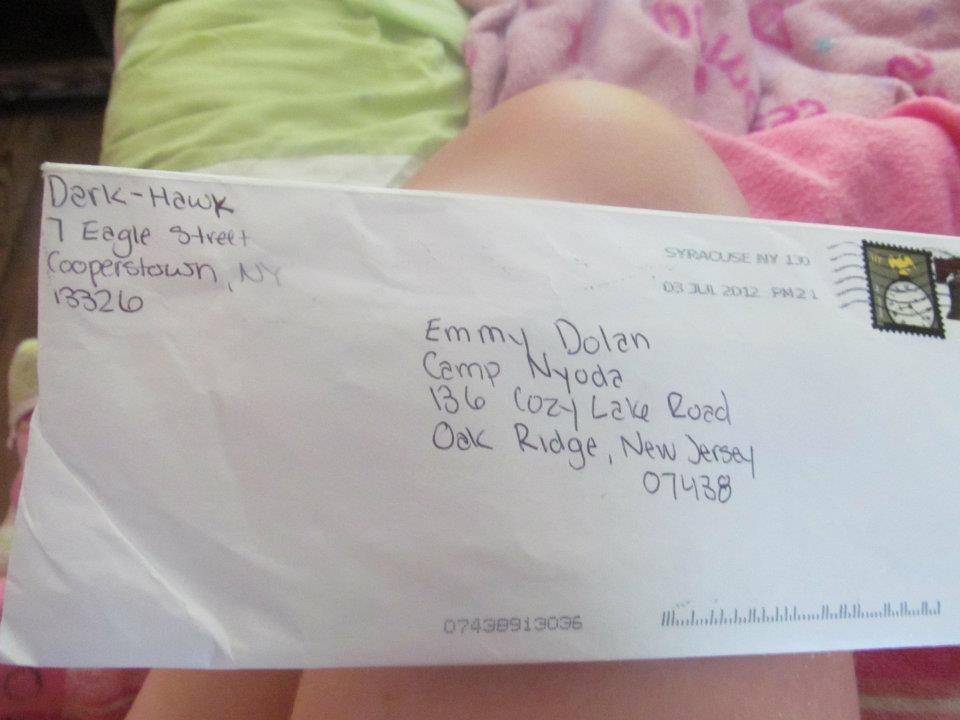 Dark-Hawk
7 Eagle Street
Cooperstown, NY
13326
SYRACUSE NY 130
03 JUL 2012 PM 2 L
Emmy Dolan
Camp Nyoda
136 Cozy Lake Road
Oak Ridge, New Jersey
07438
07438913036